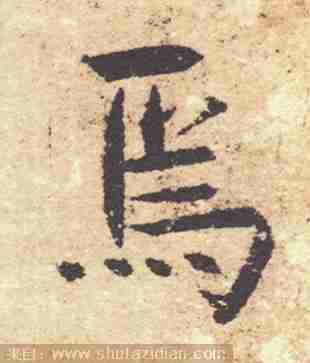 焉
来自：www.shufazidian.com